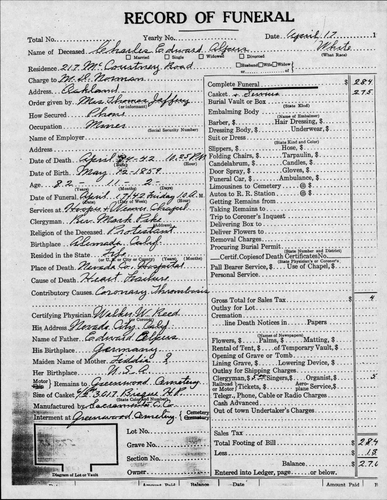 RECORD OF FUNERAL
Total No. Yearly No. Date April 17, 1
Name of Deceased Charles Edward Alpers White
Married Single Widowed Divorced (What Race)
Residence 217 Mc Courtney Road
Charge to M. R. Norman
Address Oakland
Order given by Mrs Thomas Jeffery
How Secured Phone
Occupation Miner
(Social Security Number)
Name of Employer
Address
Date of Death April 14-42 10:25 P.M.
Date of Birth May 12-1859
Age 82 - 11 - 2
Date of Funeral April 17/42 Friday 10 A.M.
Services at Hooper & Weaver Chapel
Clergyman Rev. Mark Pike
Religion of the Deceased Protestant
Birthplace Alameda, Calif.
Resided in the State Life
Place of Death Nevada Co. Hospital
Cause of Death Heart Failure
Contributory Causes Coronary Thrombosis
Certifying Physician Walker W. Reed
His Address Nevada City, Calif.
Name of Father Edward Alpers
His Birthplace Germany
Maiden Name of Mother Feddie ?
Her Birthplace U.S.A.
Motor Remains to Greenwood Cemetery
Size of Casket
Manufactured by Sacramento C. Co
Interment at Greenwood Cemetery
Lot No.
Grave No.
Section No.
Block No.
Owner
Diagram of Lot or Vault
Complete Funeral $ 284
Casket & Service 275
Burial Vault or Box
(State Kind)
Embalming Body
(Name of Embalmer)
Barber, $ Hair Dressing, $
Dressing Body, $ Underwear, $
Suit or Dress
(State Kind and Color)
Slippers, $ Hose, $
Folding Chairs, $ Tarpaulin, $
Candelabrum, $ Candles, $
Door Spray, $ Gloves, $
Funeral Car, $ Ambulance, $
Limousines to Cemetery @ $
Autos to R. R. Station @ $
Getting Remains from
Taking Remains to
Trip to Coroner's Inquest
Delivering Box to
Deliver Flowers to
Removal Charges
Procuring Burial Permit
(State Number and District)
Certif. Copies of Death Certificates No.
Pall Bearer Service, $ Use of Chapel, $
Personal Service
Gross Total for Sales Tax $ 4
Outlay for Lot
Cremation
line Death Notices in Papers
(Names of Newspapers)
Flowers, $ Palms, $ Matting, $
Rental of Tent, $ of Temporary Vault, $
Opening of Grave or Tomb
Lining Grave, $ Lowering Device, $
Outlay for Shipping Charges
Clergyman, $ 5.00 Singers, $ Organist, $ 5
Railroad Tickets, $ Aeroplane Service, $
Telegr., Phone, Cable or Radio Charges
Cash Advanced
Out of town Undertaker's Charges
Sales Tax
Total Footing of Bill $ 284
Less $
Balance $
Entered into Ledger, page or below.
Amount Paid Balance Date Amount Paid